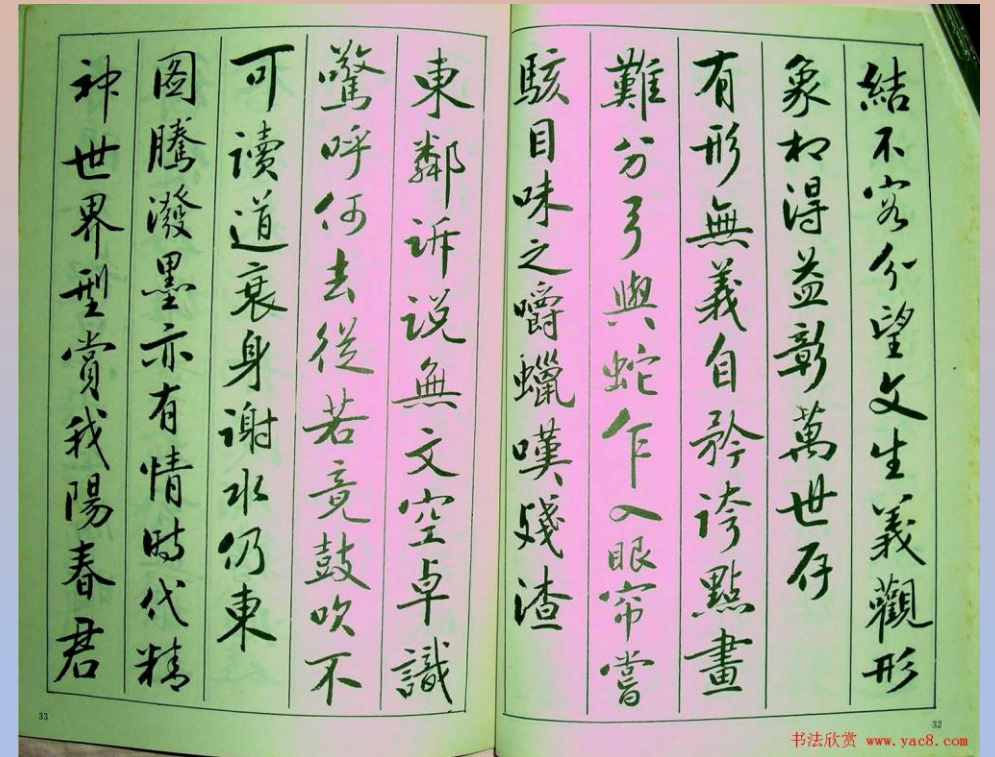 結不容分望文生義觀形
象相得益彰萬世存
有形無義自矜誇點畫
難分弓與蛇乍入眼帘嘗
駭目味之嚼蠟嘆殘渣
東鄰訴説無文空卓識
驚呼何去從若竟鼓吹不
可讀道衰身謝水仍東
圖騰潑墨亦有情時代精
神世界型賞我陽春君
33
32
书法欣赏 www.yac8.com